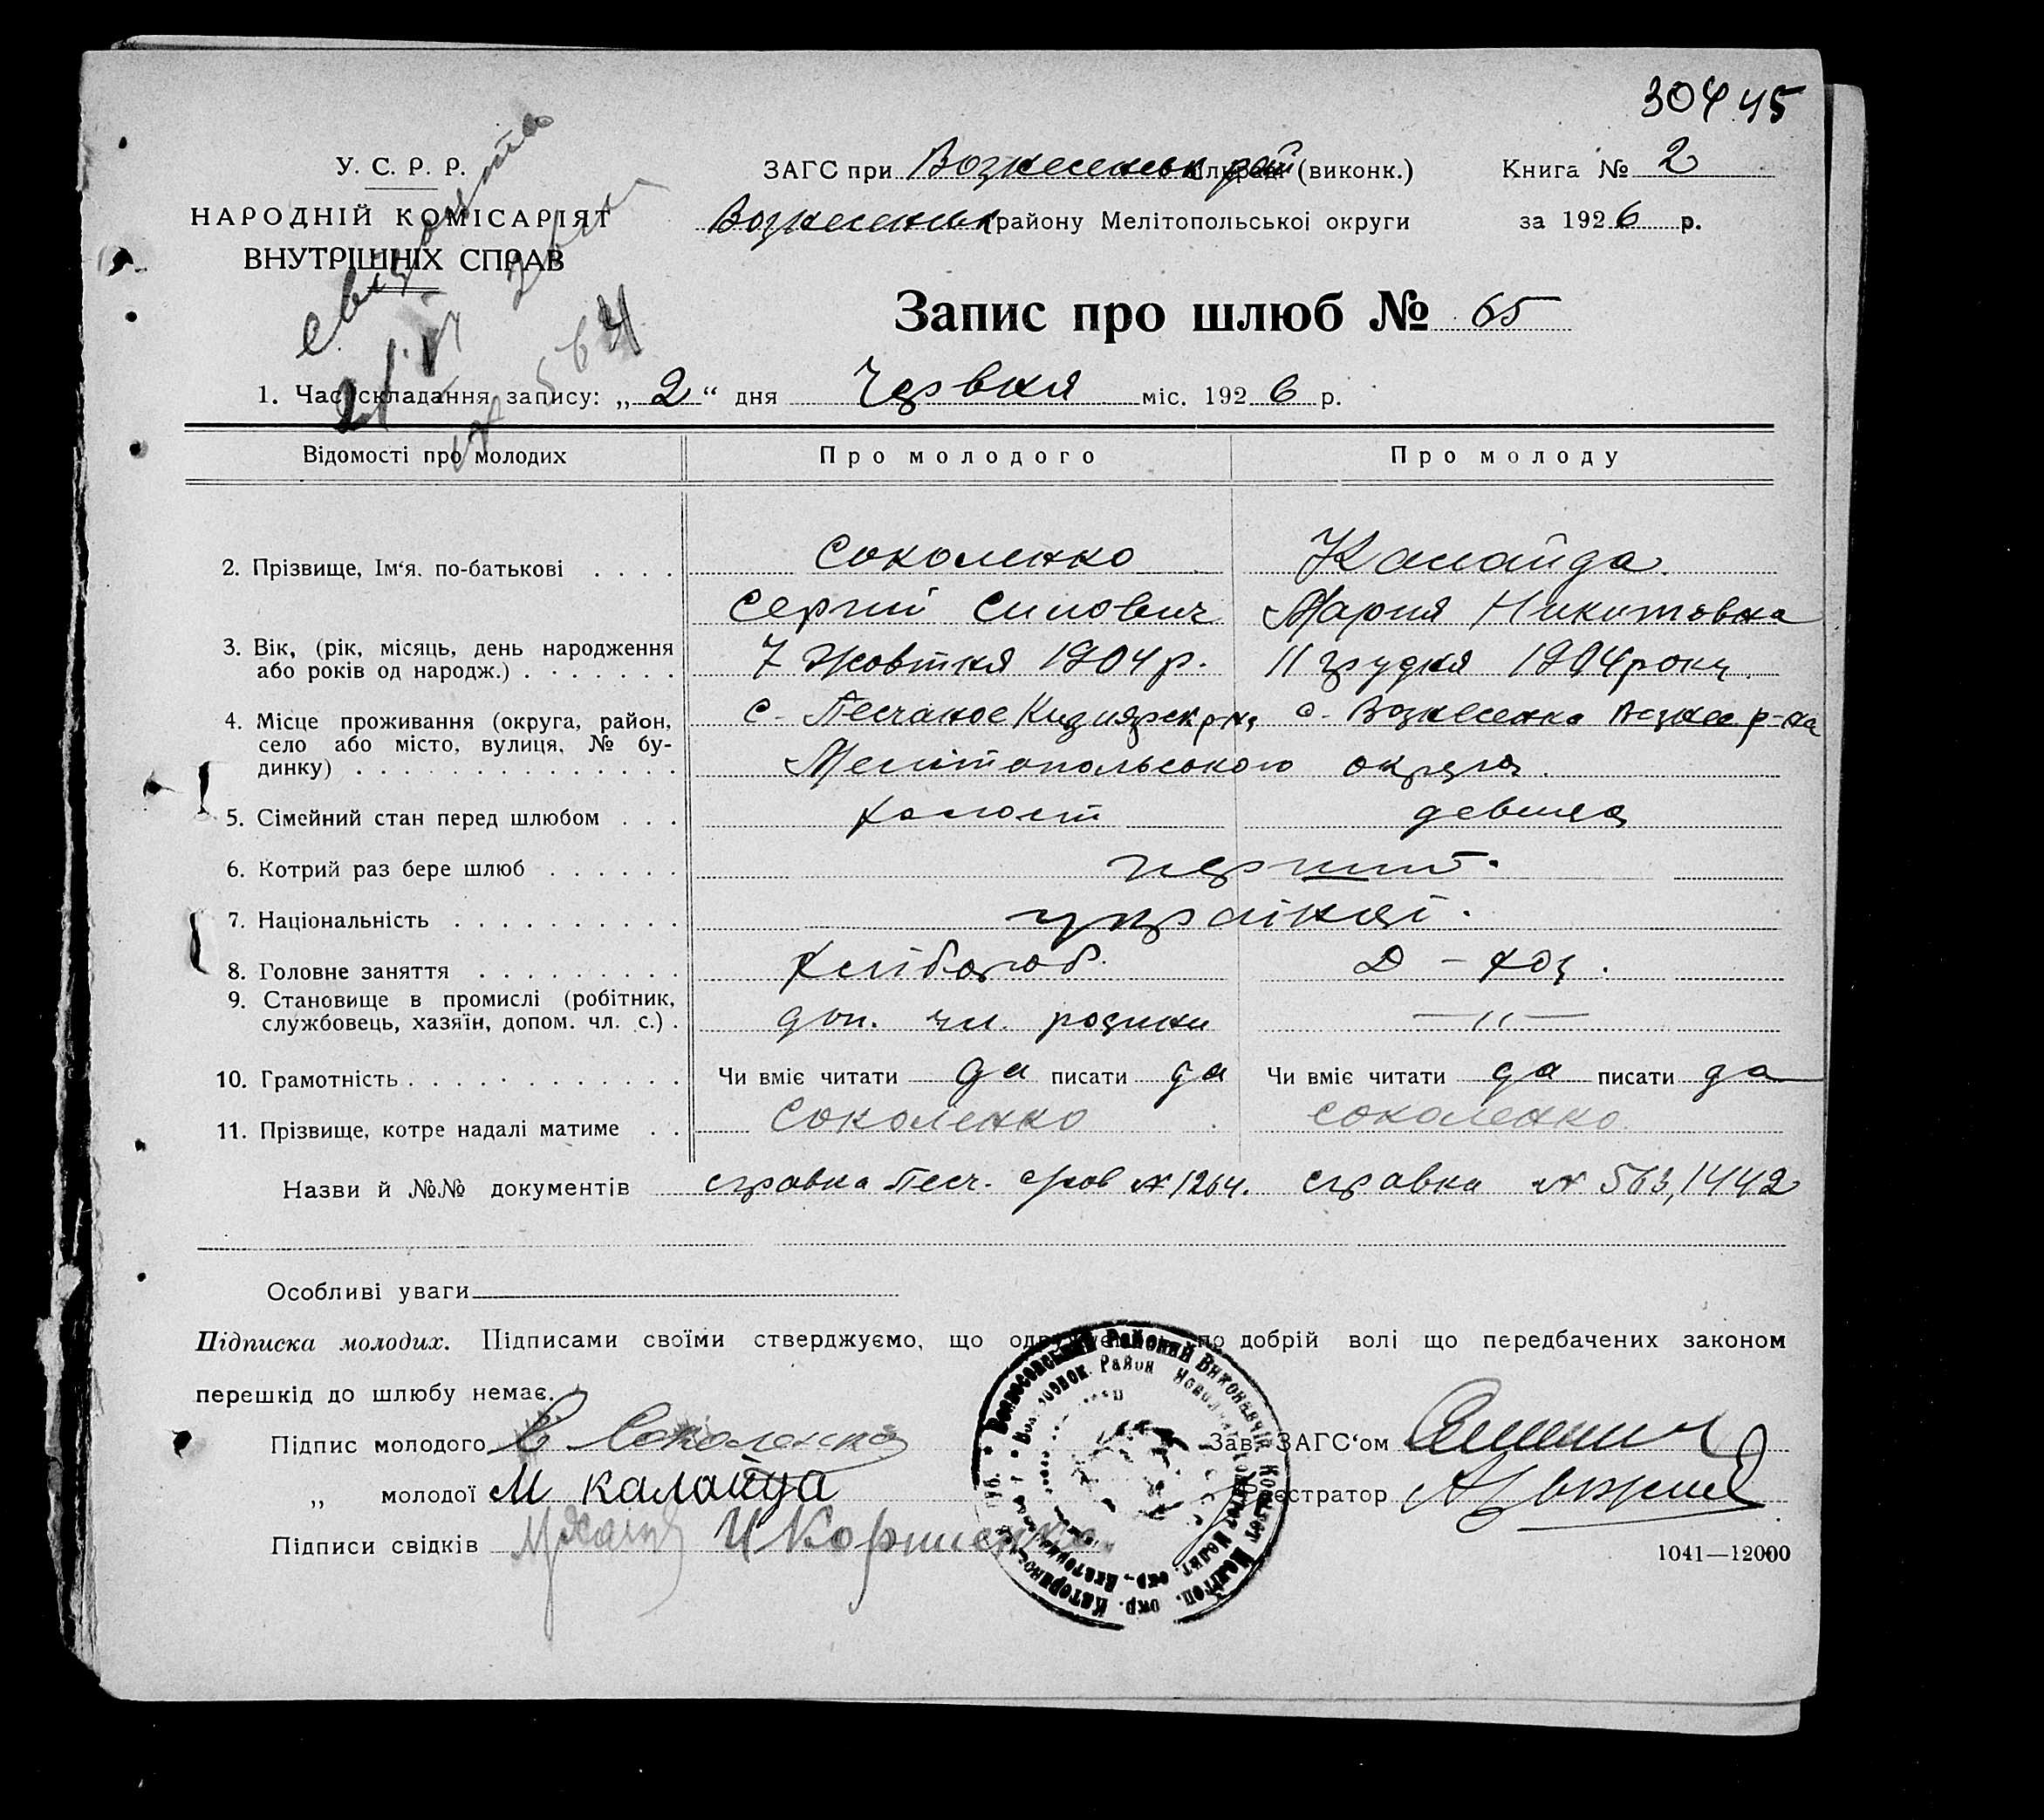 304 45
У. С. Р. Р.
НАРОДНІЙ КОМІСАРІЯТ
ВНУТРІШНІХ СПРАВ
ЗАГС при Вознесенськ рай (виконк.)
Вознесенськ району Мелітопольської округи
Книга № 2
за 1926 р.
564
Запис про шлюб № 65
1. Час складання запису: „2“ дня Червня міс. 1926 р.
Відомості про молодих Про молодого Про молоду
2. Прізвище, Ім‘я, по-батькові . . . . Соколенко Калайда.
Сергій Силович Мария Никитовна
3. Вік, (рік, місяць, день народження 7 Жовтня 1904 р. 11 грудня 1904 року
або років од народж.) . . . . . . .
4. Місце проживання (округа, район, с. Песчаное Кизиярск р-на с. Вознесенка Вознес р-на
село або місто, вулиця, № бу-
динку) . . . . . . . . . . . . . . Мелітопольської округи.
5. Сімейний стан перед шлюбом . . . холост девица
6. Котрий раз бере шлюб . . . . . . перший.
7. Національність . . . . . . . . . . українці.
8. Головне заняття . . . . . . . . . хлібороб. Д - хоз.
9. Становище в промислі (робітник,
службовець, хазяїн, допом. чл. с.) . доп. чл. родини — „ —
10. Грамотність . . . . . . . . . . . . Чи вміє читати да писати да Чи вміє читати да писати да
11. Прізвище, котре надалі матиме . . Соколенко Соколенко
Назви й №№ документів справка Песч. № 1264. справка № 563, 1442
Особливі уваги
Підписка молодих. Підписами своїми стверджуємо, що по добрій волі що передбачених законом
перешкід до шлюбу немає.
Підпис молодого С Соколенко
Зав. ЗАГС‘ом
„ молодої М Калайда
Реєстратор
Підписи свідків И Корниенко
1041—12000
Районий Виконавчій Комітет Меліт­оп. окр. Катерино